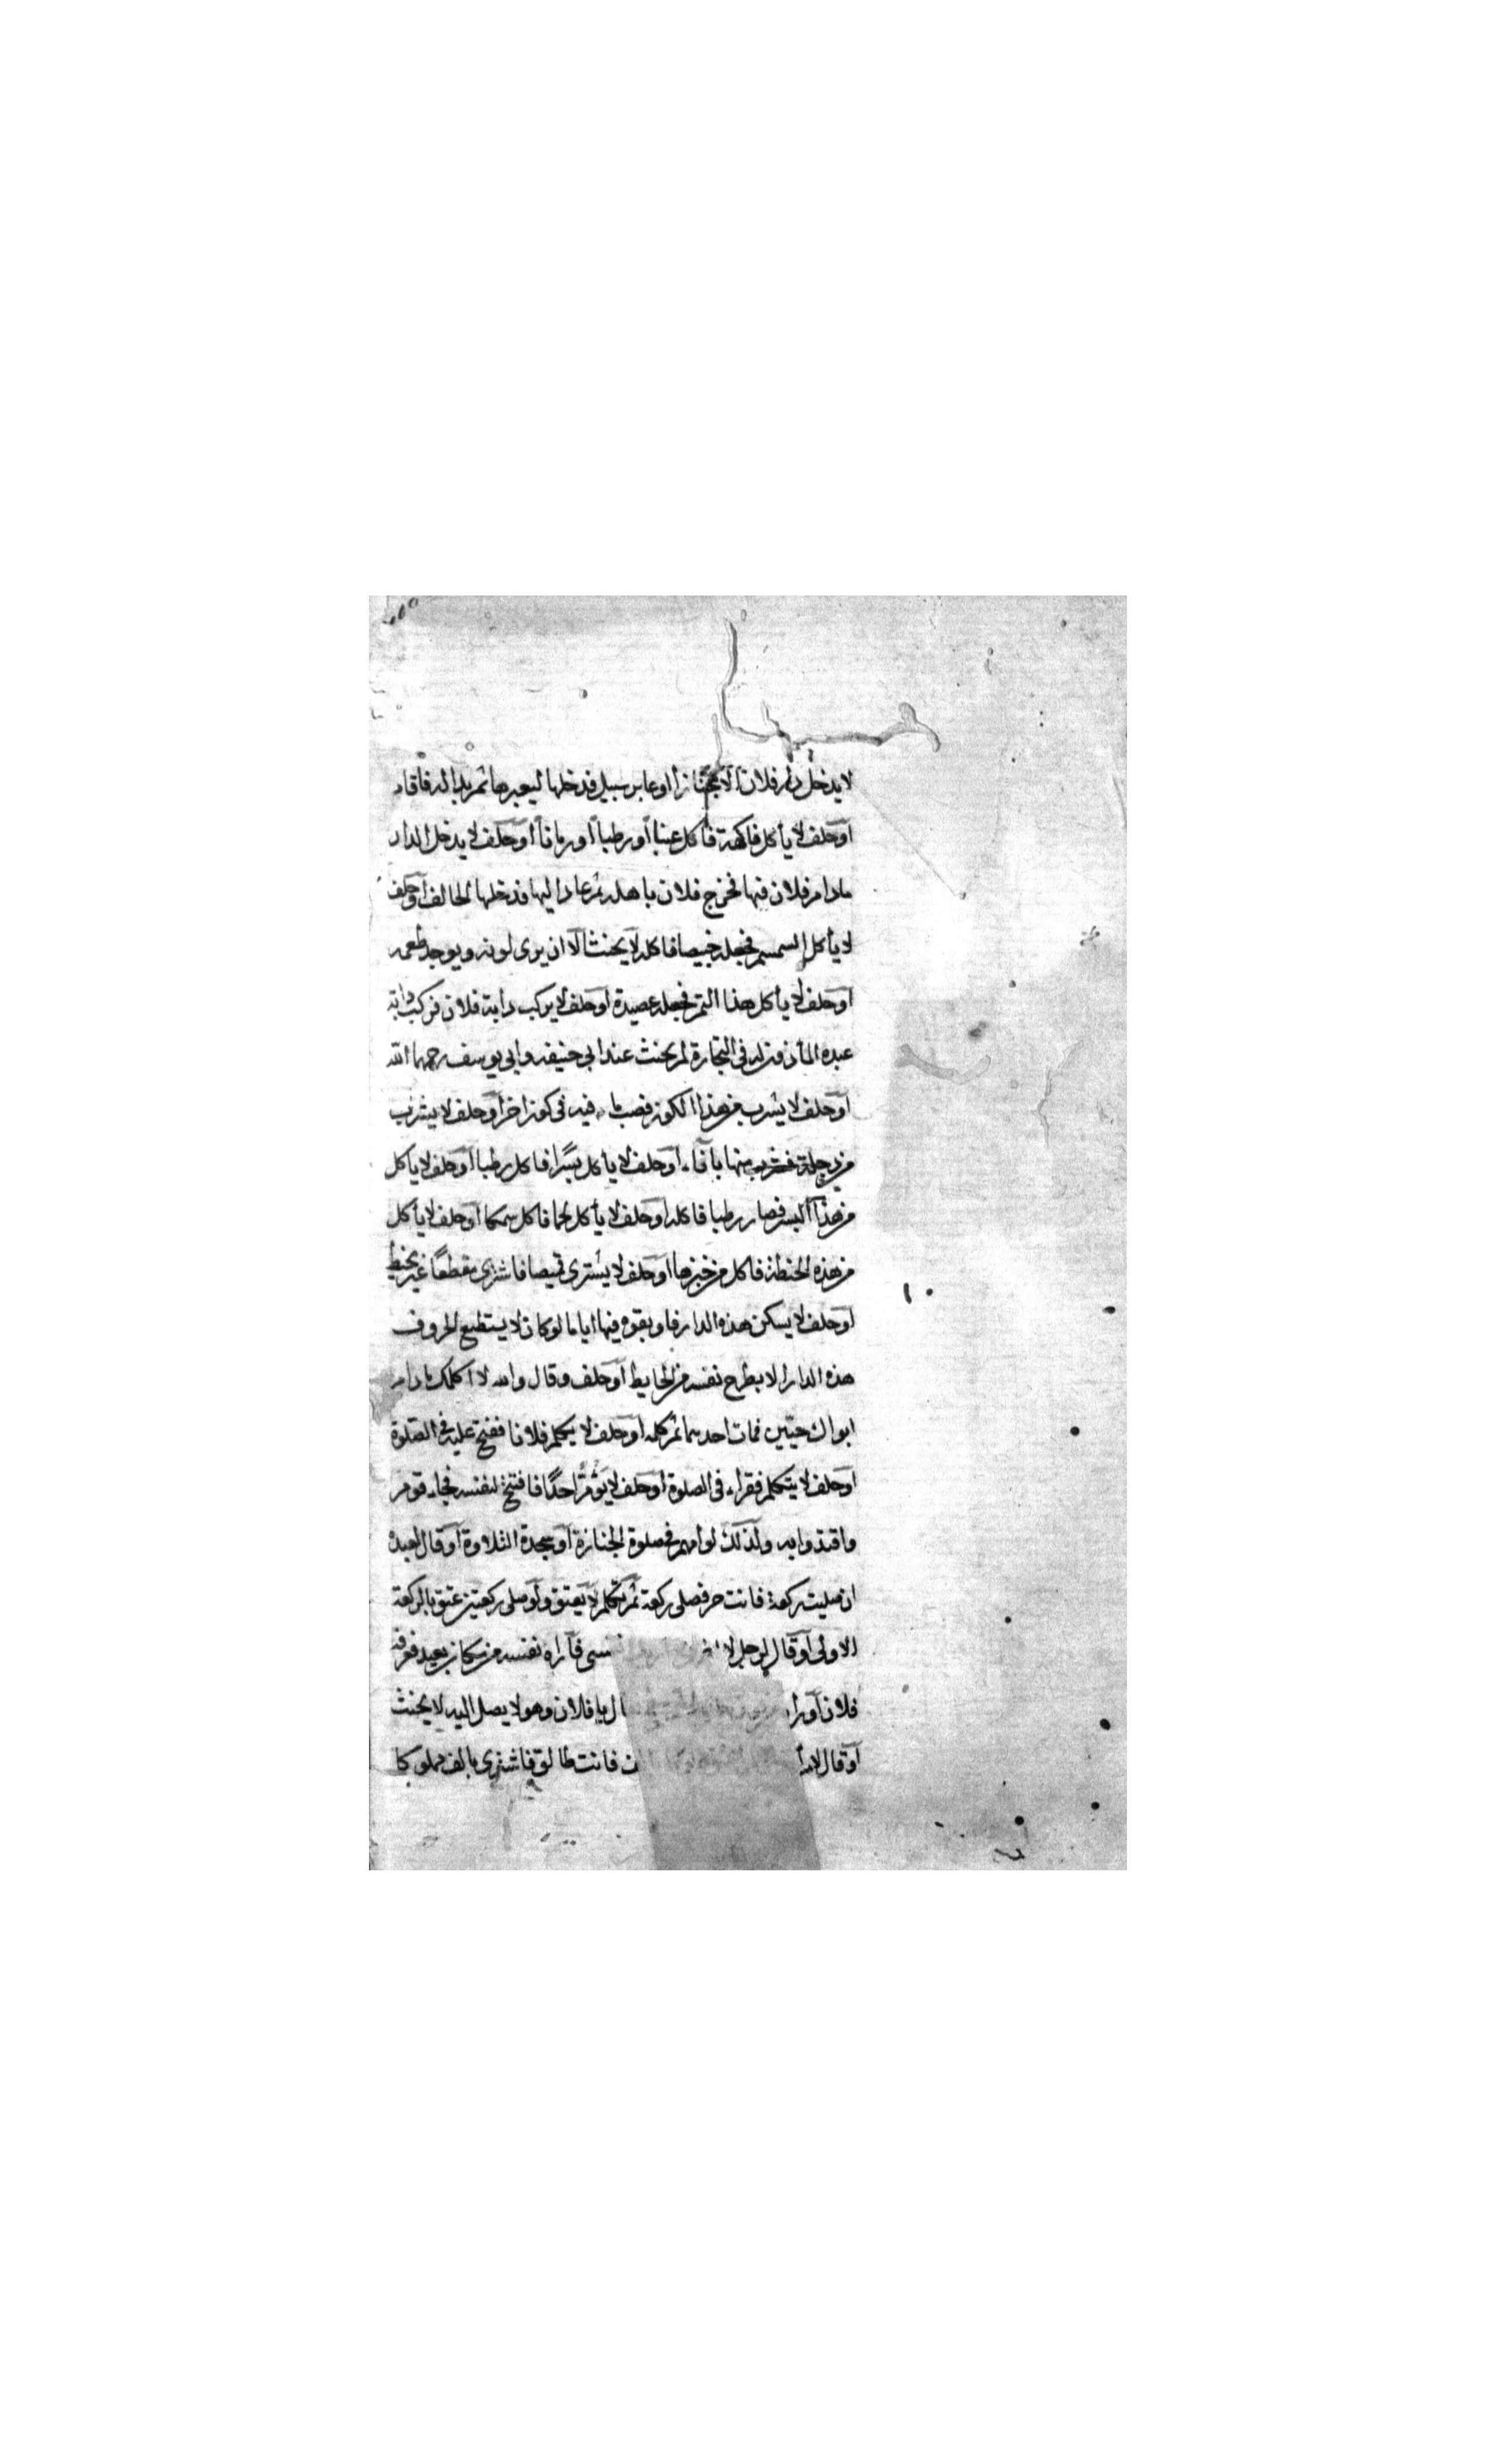 لا يدخل دار فلان الا مجتازا أو عابر سبيل فدخلها ليعبرها ثم بدا له فاقام
أو حلف لا يأكل فاكهة فأكل عنبا أو رطبا أو رمانا أو حلف لا يدخل الدار
مادام فلان فيها فخرج فلان باهله ثم عاد اليها فدخلها الحالف أو حلف
لا يأكل السمسم فجعله خبيصا فاكله لا يحنث الا ان يرى لونه ويوجد طعمه
أو حلف لا يأكل هذا التمر فجعله عصيدة أو حلف لا يركب دابة فلان فركب دابة
عبده المأذون له في التجارة لم يحنث عند ابي حنيفه وابي يوسف رحمهما الله
أو حلف لا يشرب من هذا الكوز فصب ماء فيه في كوز اخر أو حلف لا يشرب
من دجلة فشرب منها بآناء أو حلف لا يأكل بسرًا فاكل رطبا أو حلف لا يأكل
من هذا البسر فصار رطبا فاكله أو حلف لا يأكل لحما فاكل سمكا أو حلف لا يأكل
من هذه الحنطة فاكل من خبزها أو حلف لا يشترى قميصا فاشترى مقطعًا غير مخيط
أو حلف لا يسكن هذه الدار فاوبقوه فيها اياما لو كان لا يستطيع الخروف
هذه الدار الا بطرح نفسه من الحايط أو حلف وقال والله لا اكلمك مادام
ابواك حيّين فمات احدهما ثم كلمه أو حلف لا يكلم فلانا ففتح عليه في الصلوة
أو حلف لا يتكلم فقراء في الصلوة أو حلف لا يؤمّ احدًا فافتتح لنفسه فجاء قوم
واقتدوا به وكذلك لو امهم في صلوة الجنازة أو سجدة التلاوة أو قال لعبده
ان صليت ركعة فانت حر فصلى ركعة ثم تكلم لا يعتق ولو صلى ركعتين عتق بالركعة
الاولى أو قال لرجل لا نفسى فأراه نفسه من مكان بعيد فعرفه
فلان أو را يا فلان وهو لا يصل اليه لا يحنث
أو قال فانت طالق فاشترى بالف مملوكا